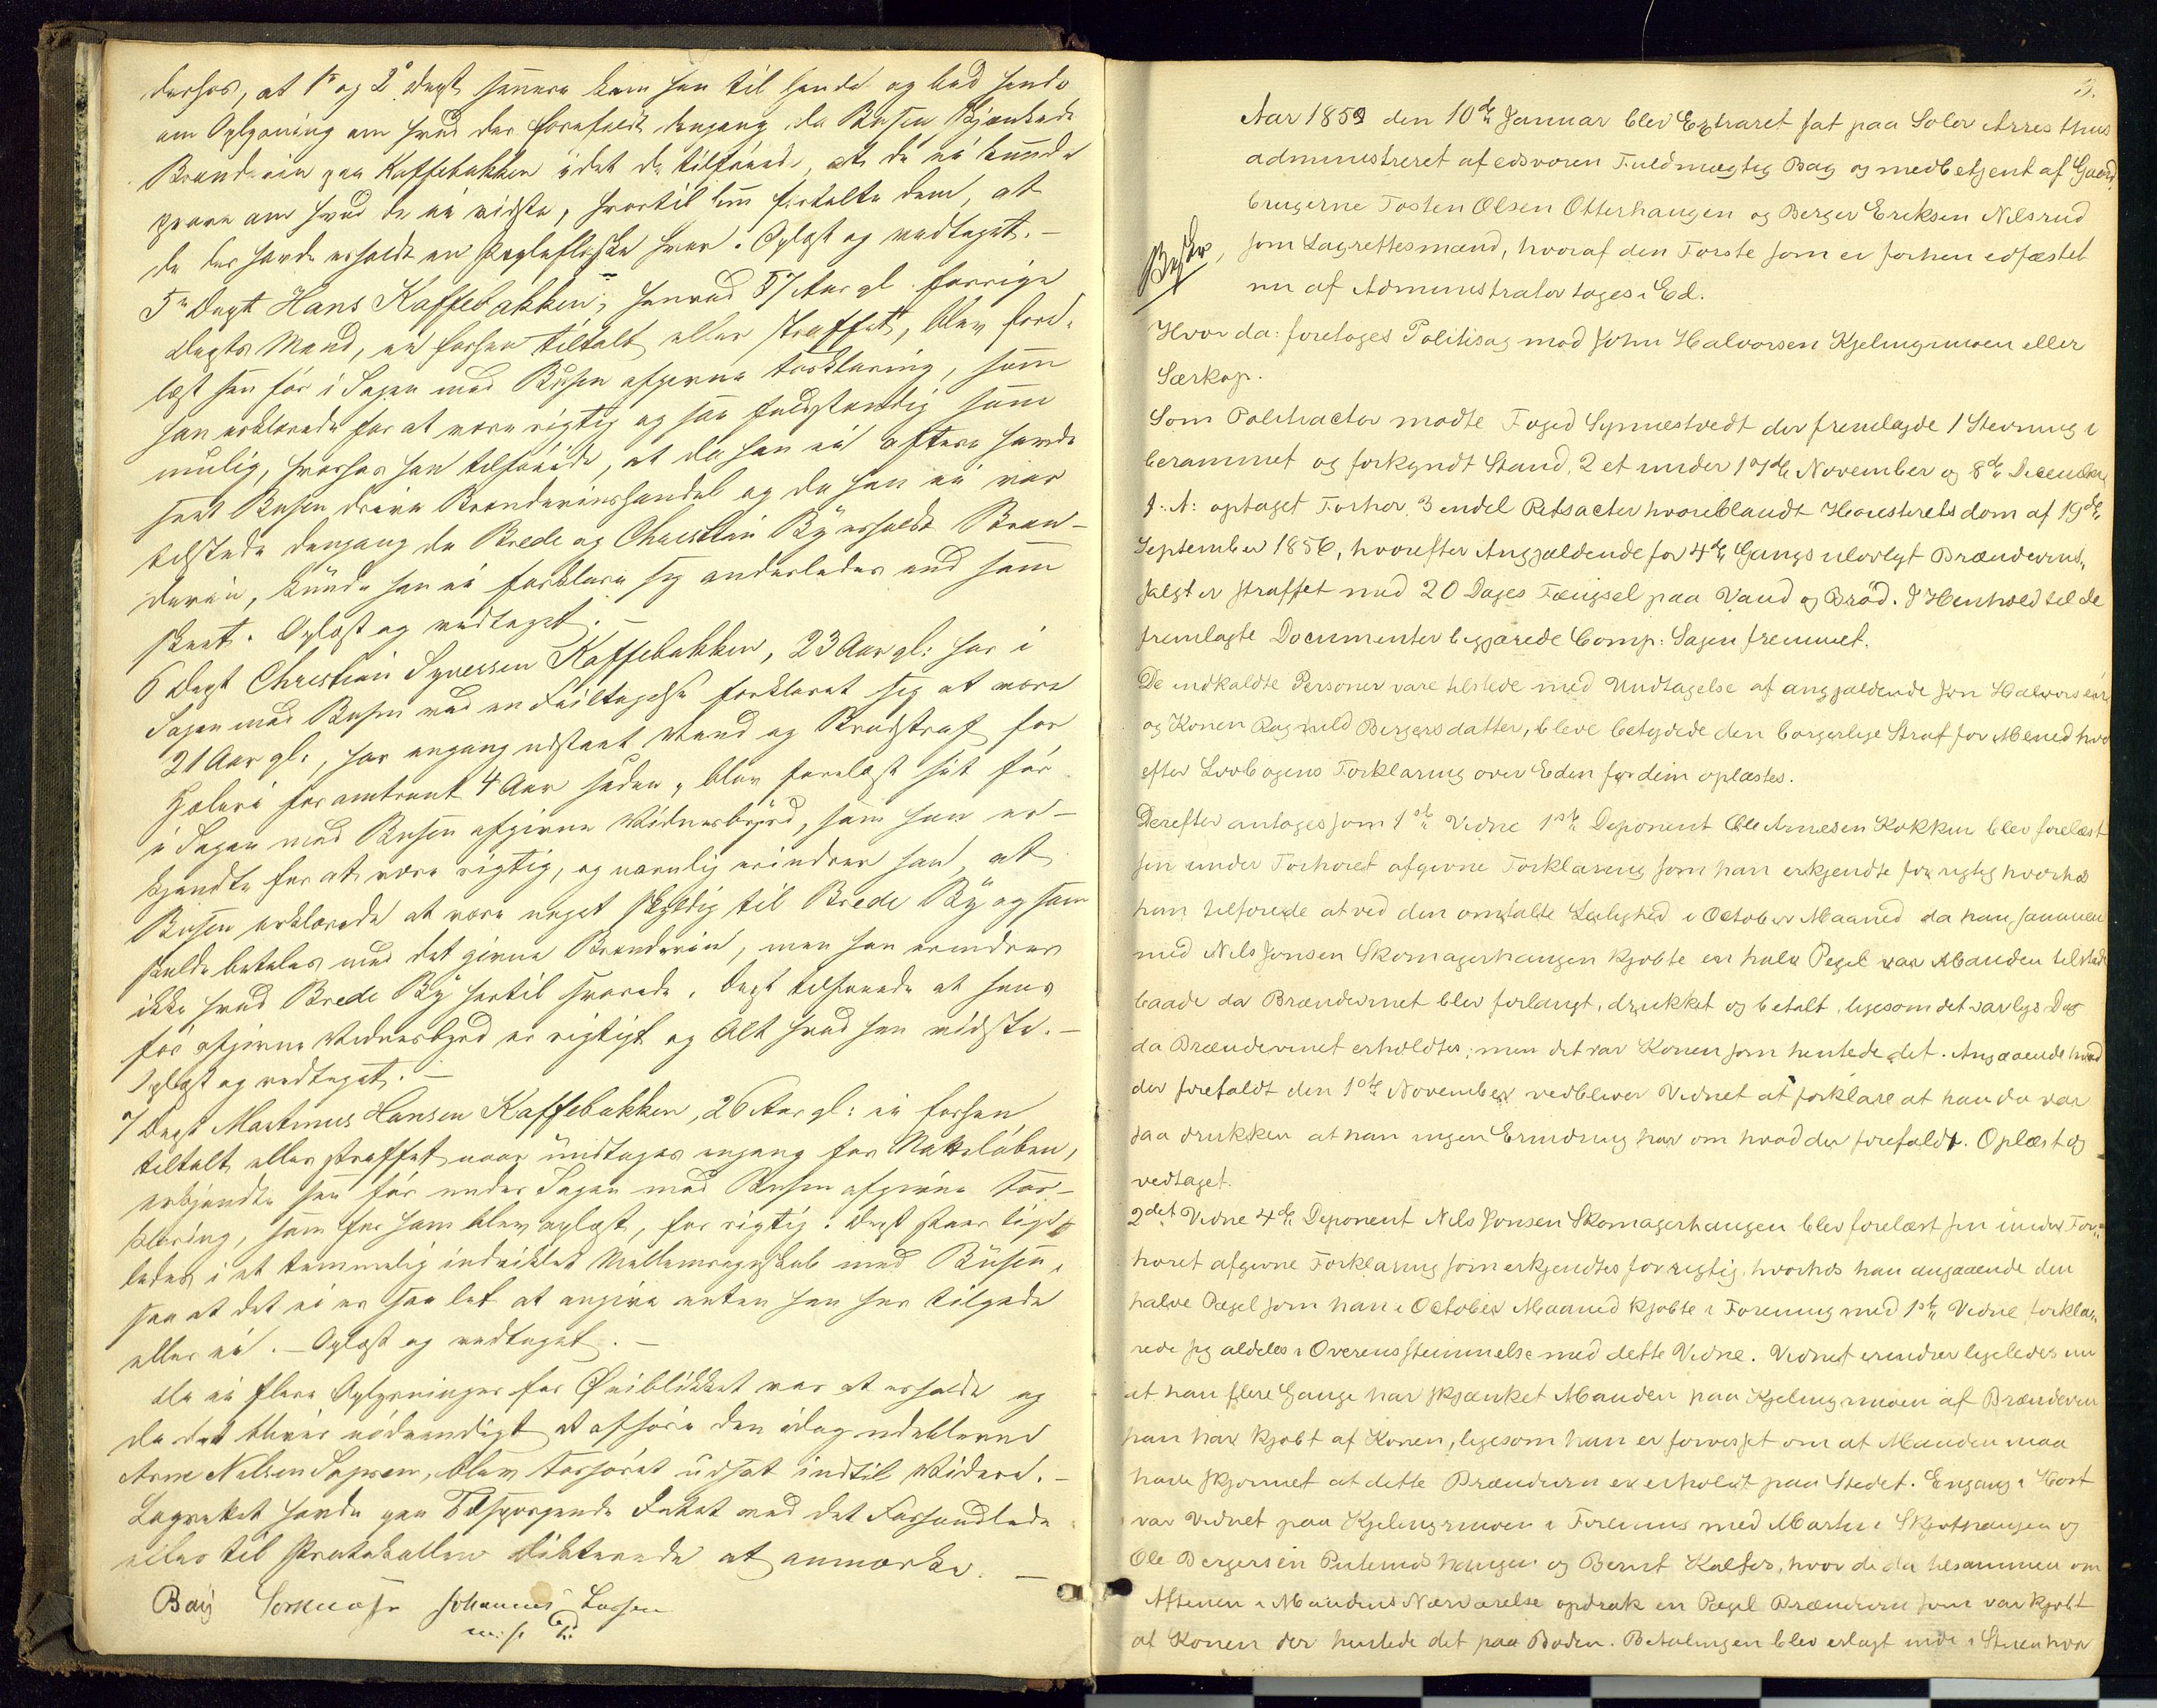 derhos, at 1ste og 2de Dept sennere kom hen til hende og bad hende
om Oplysning om hvad der forefaldt dengang da Busen skjænkede
Brændeviin paa Kaffebakken idet de tilføiede, at de ei kunde
svare om hvad de ei vidste, hvortil hun fortalte dem, at
de der havde erholdt en Pægleflaske hver. Oplæst og vedtaget. –
5te Dept Hans Kaffebakken, henved 57 Aar gl. forrige
Depts Mand, ei forhen tiltalt eller straffet, blev fore-
læst sin før i Sagen mod Busen afgivne Forklaring, som
han erklærede for at være rigtig og saa fuldstændig som
mulig, hvorhos han tilføiede, at da han ei oftere havde
seet Busen drive Brændeviinshandel og da han ei var
tilstede dengang da Brede og Christian By erholdt Bræn-
deviin, kunde han ei forklare sig anderledes end som
skeet. Oplæst og vedtaget. –
6 Dept Christian Syversen Kaffebakken, 23 Aar gl: har i
Sagen mod Busen ved en Feiltagelse forklaret sig at være
21 Aar gl:, har engang udstaaet Vand og Brødstraf for
Hæleri for omtrent 4 Aar siden, blev forelæst sit før
i Sagen mod Busen afgivne Vidnesbyrd, som han er-
kjendte for at være rigtig, og navnlig erindrer han, at
Busen erklærede at være noget skyldig til Brede By og som
skulde betales med det givne Brændeviin, men han erindrer
ikke hvad Brede By hertil svarede. Dept tilføiede at hans
før afgivne Vidnesbyrd er rigtigt og Alt hvad han vidste. –
Oplæst og vedtaget. –
7 Dept Martinus Hansen Kaffebakken, 26 Aar gl: ei forhen
tiltalt eller straffet naar undtages engang for Natteløben,
erkjendte sin før under Sagen mod Busen afgivne For-
klaring, som for ham blev oplæst, for rigtig. Dept staar lige-
ledes i et temmelig indviklet Mellemregnskab med Busen,
saa at det ei er saa let at angive enten han har tilgode
eller ei. – Oplæst og vedtaget. –
Da ei flere Oplysninger for Øieblikket var at erholde og
da det bliver nødvendigt at afhøre den idag udeblevne
Arne Nilsen Sagveen, blev Forhøret udsat indtil Videre. –
Lagrettet havde paa Tilspørgende Intet ved det Forhandlede
eller til Protokollen dikterede at anmærke. –
Bay Johannes Larsen
m: p: P:
3.
Aar 1859 den 10de Januar blev Extraret sat paa Solør Arresthus
administreret af edsvoren Fuldmægtig Bay og medbetjent af Gaard-
brugerne Tosten Olsen Otterhaugen og Berger Eriksen Nilsrud
som Lagrettesmænd, hvoraf den Første som ei forhen edfæstet
nu af Administrator toges i Ed.
Hvor da: foretoges Politisag mod John Halvorsen Kjelingmoen eller
Særkop.
Som Politiactor mødte Foged Synnestvedt der fremlagde 1 Stevning i
berammet og forkyndt Stand, 2 et under 17de November og 8de December
f: A: optaget Forhør, 3 endel Retsacter hvoriblandt Høiesterets dom af 19de
September 1856, hvorefter Angjældende for 4de Gangs ulovligt Brændeviins-
salgt er straffet med 20 Dages Fængsel paa Vand og Brød. I Henhold til de
fremlagte Documenter begjærede Comp: Sagen fremmet.
De indkaldte Personer vare tilstede med Undtagelse af angjældende Jon Halvorsen
og Konen Ragnild Bergersdatter, bleve betydede den borgerlige Straf for Meened hvor
efter Lovbogens Forklaring over Eden for dem oplæstes.
Derefter antoges som 1ste Vidne 1ste Deponent Ole Arnesen Kokken blev forelæst
sin under Forhøret afgivne Forklaring som han erkjendte for rigtig hvorhos
han tilføiede at ved den omtalte Leilighed i October Maaned da han sammen
med Nils Jonsen Skomagerhaugen kjøbte en halv Pegel var Manden tilstede
baade da Brændevinet blev forlangt, drukket og betalt, ligesom det var lys Dag
da Brændevinet erholdtes; men det var Konen som hentede det. Angaaende hvad
der forefaldt den 1ste November vedbliver Vidnet at forklare at han da var
saa drukken at han ingen Erindring har om hvad der forefaldt. Oplæst og
vedtaget.
2det Vidne 4de Deponent Nils Jonsen Skomagerhaugen blev forelæst sin under For-
høret afgivne Forklaring som erkjendtes for rigtig, hvorhos han angaaende den
halve Pægel som han i October Maaned kjøbte i Forening med 1ste Vidne forkla-
rede sig aldeles i Overensstemmelse med dette Vidne. Vidnet erindrer ligeledes nu
at han flere Gange har skjænket Manden paa Kjelingmoen af Brændeviin
han har kjøbt af Konen, ligesom han er forvisset om at Manden maa
have skjønnet at dette Brændeviin er erholdt paa Stedet. Engang i Høst
var Vidnet paa Kjelingmoen i Forening med Martin Skjothaugen og
Ole Bergersen og Bernt Kalfos, hvor de da tilsammen om
Aftenen i Mandens Nærværelse opdrak en Pægel Brændeviin som var kjøbt
af Konen der hentede det paa Boden. Betalingen blev erlagt inde i Stuen hvor